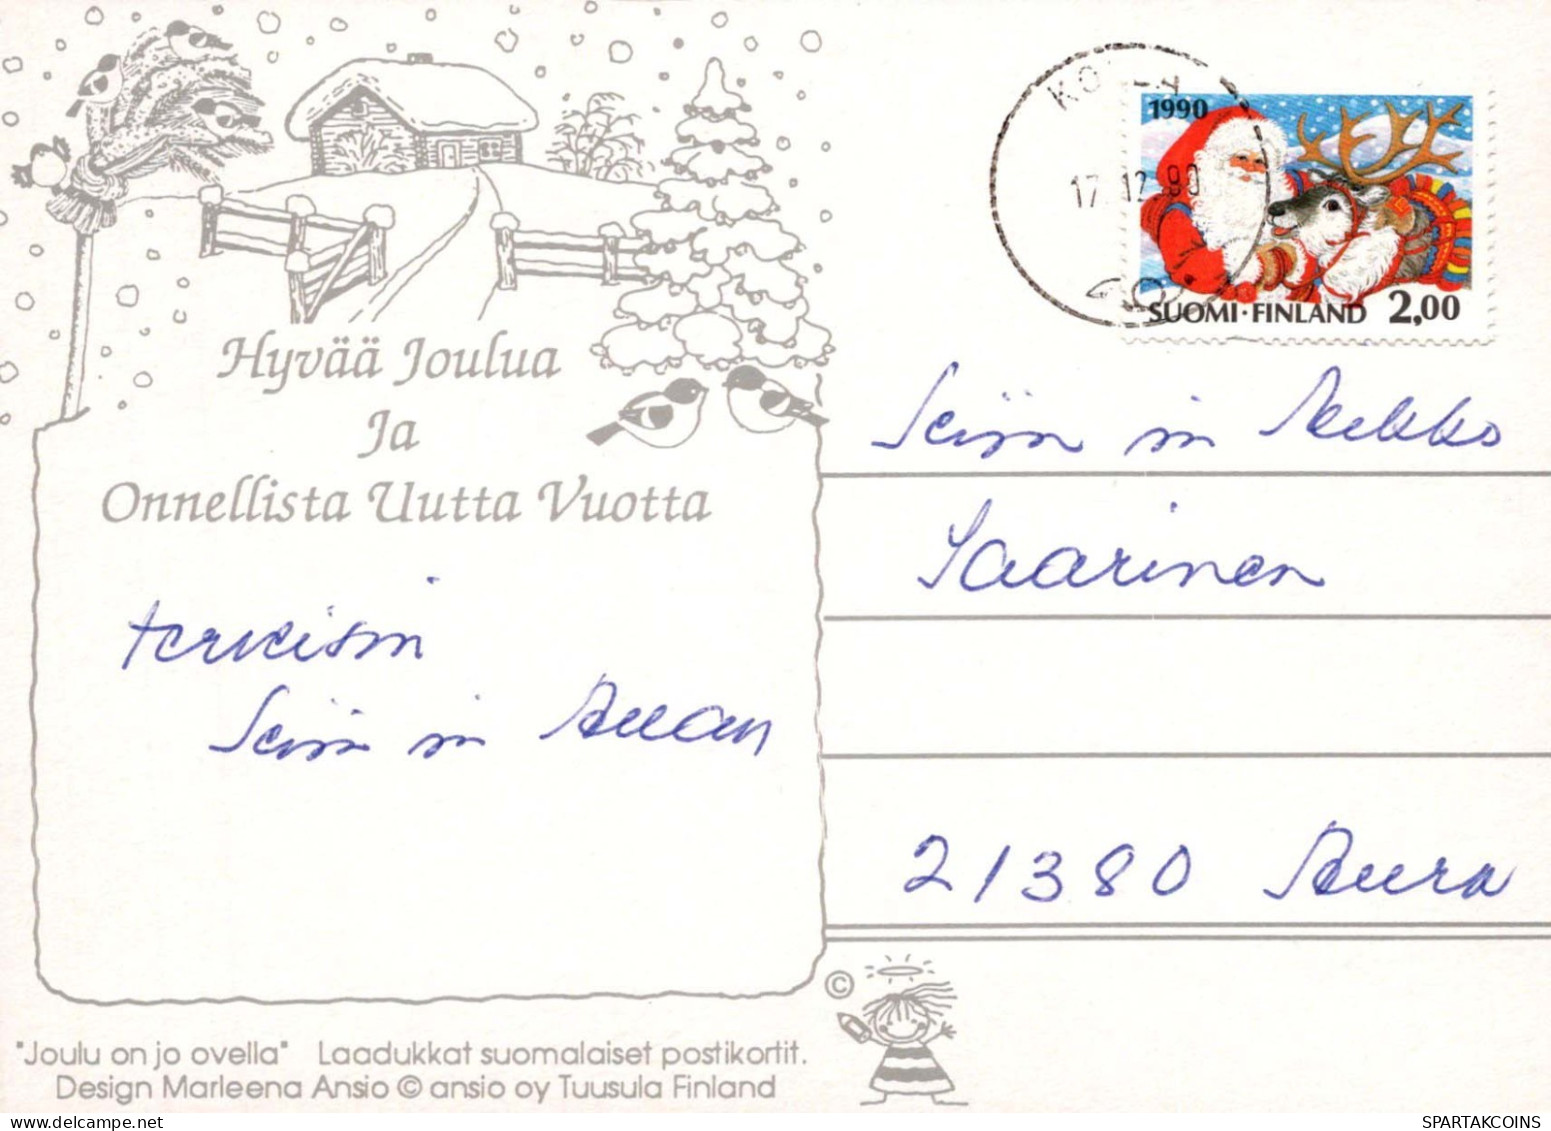 Hyvää Joulua
Ja
Onnellista Uutta Vuotta
terveisin
KO
17.12.90
1990
SUOMI·FINLAND 2,00
Saarinen
21380 Aura
©
"Joulu on jo ovella" Laadukkat suomalaiset postikortit.
Design Marleena Ansio © ansio oy Tuusula Finland
SPARTAKCOINS